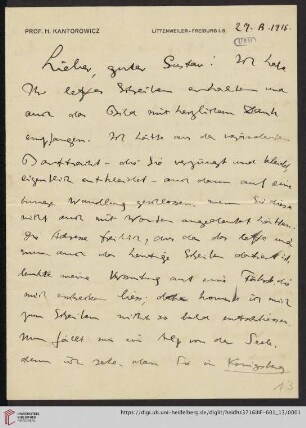 PROF. H. KANTOROWICZ
LITTENWEILER-FREIBURG I.B.
Lieber, guter Gustav! Ich habe
Ihr letztes Schreiben erhalten und
auch das Bild mit herzlichem Dank
empfangen. Ich hätte aus der veränderten
Barttracht - die Sie verjüngt und
eigentlich - auch dann auf eine
innere Wandlung geschlossen, wenn Sie diese
nicht auch mit Worten angedeutet hätten.
Die Adresse freilich, aus der das letzte und
nun auch das heutige Schreiben datiert ist,
lenkte meine auf eine Fährte, die
mich liess; daher konnte ich mich
zum Schreiben nicht so bald entschliessen.
Nun fällt mir ein Alp von der Seele,
denn ich sehe, dass Sie in Königsberg
13
UNIVERSITÄTS-
BIBLIOTHEK
HEIDELBERG
https://digi.ub.uni-heidelberg.de/diglit/heidhs3716IIIF-601_13/0001